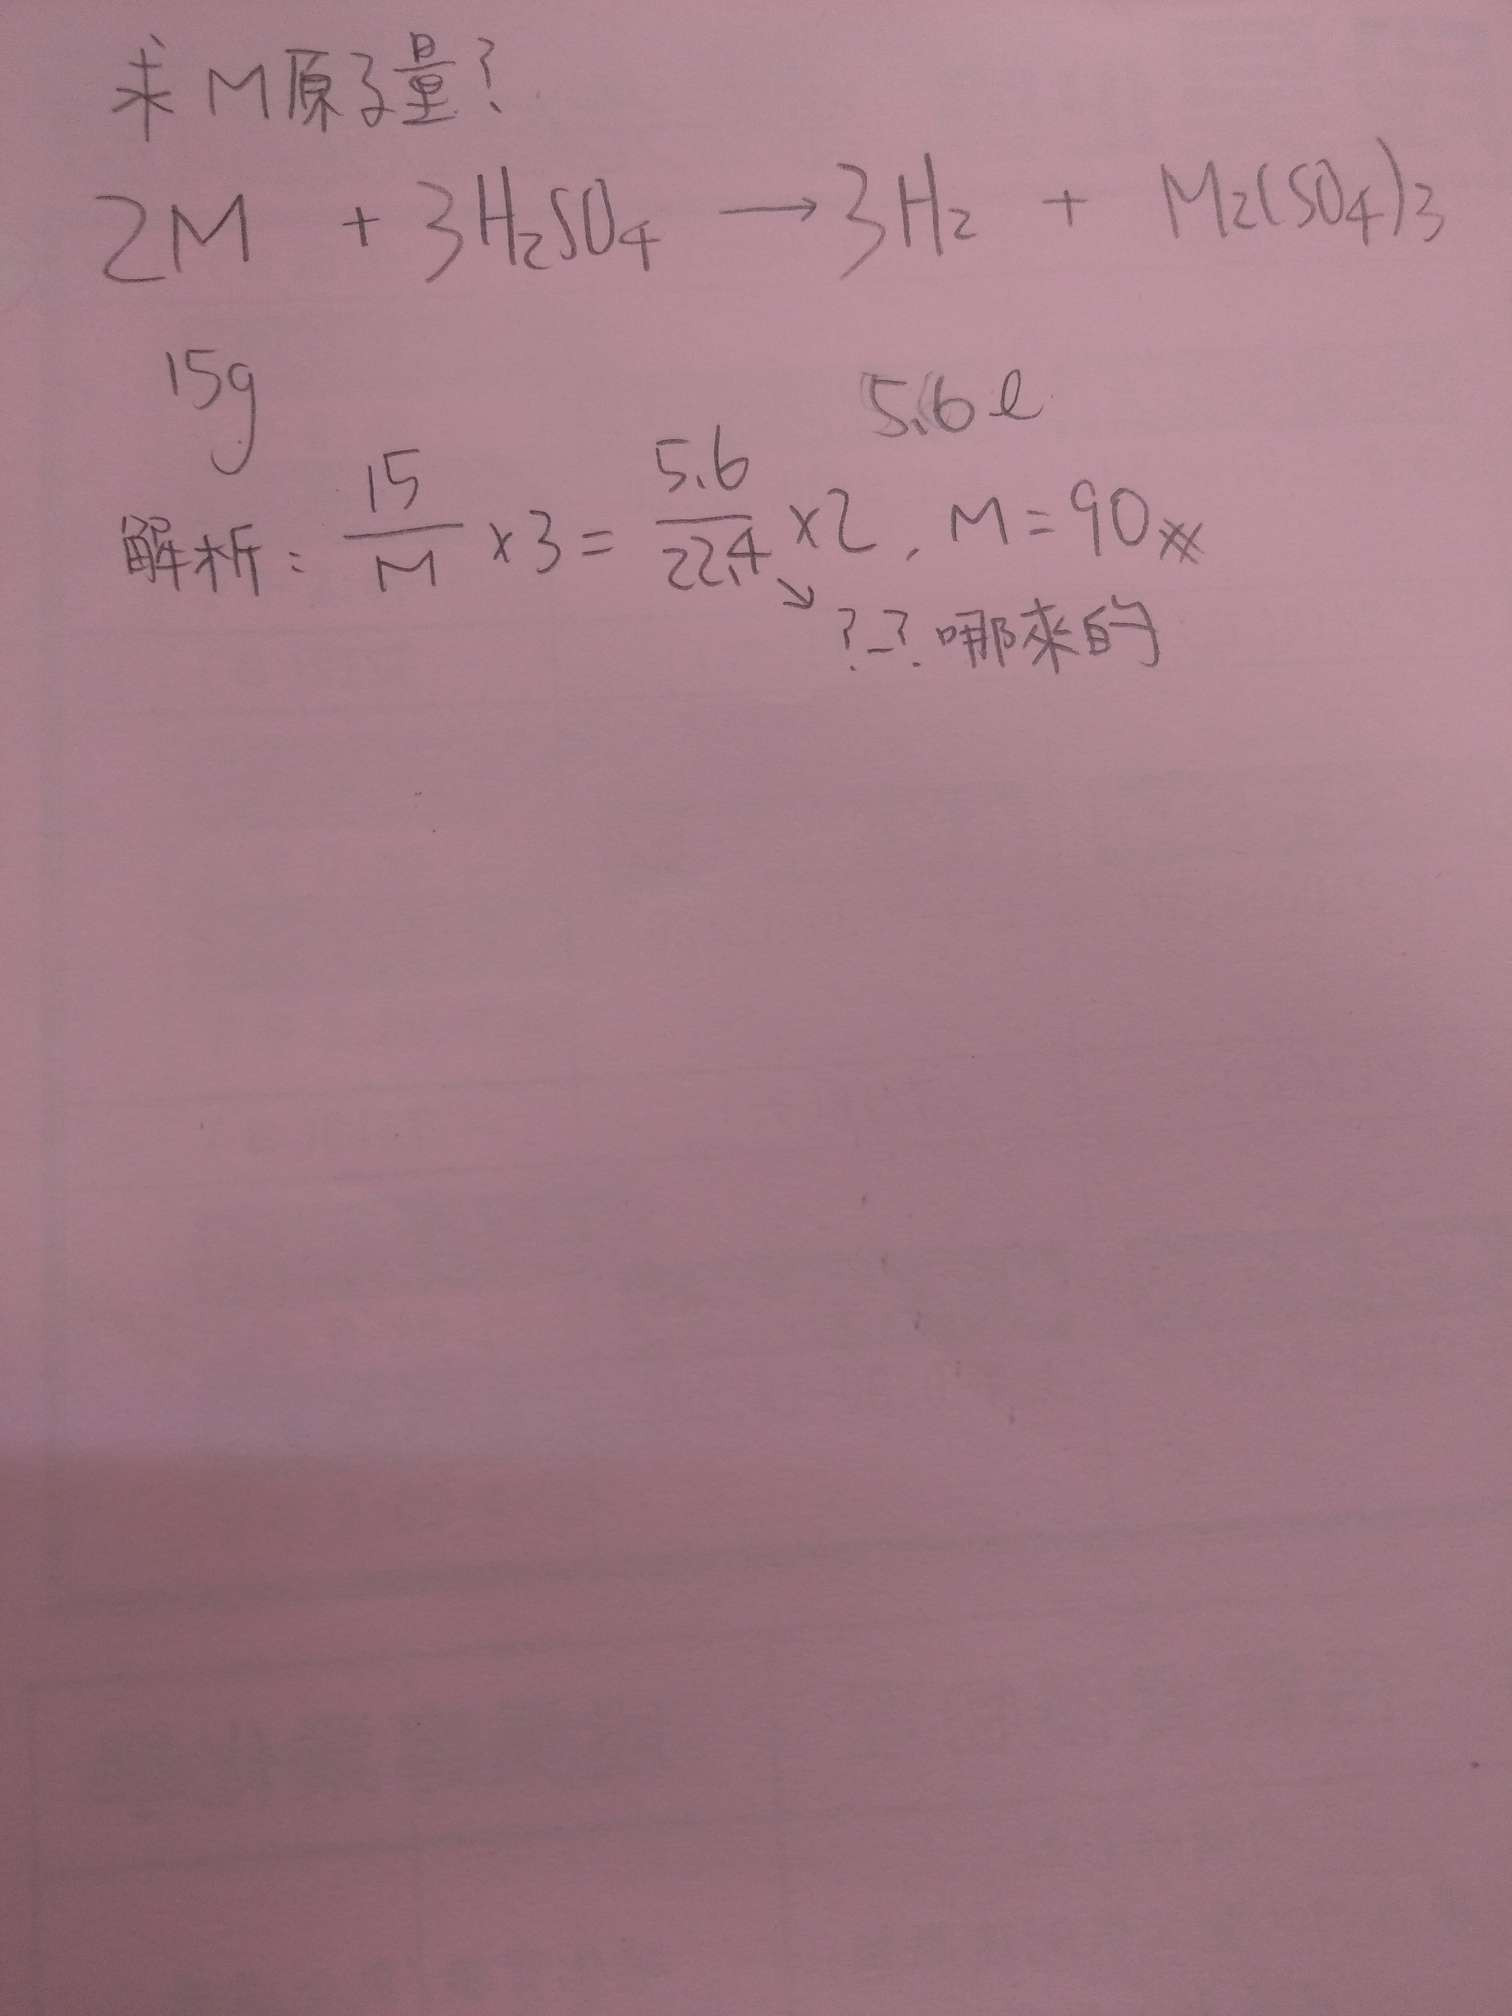 求M原子量?
2M + 3H₂SO₄ → 3H₂ + M₂(SO₄)₃
15g 5.6ℓ
解析: 15/M ×3 = 5.6/22.4 ×2, M=90※
↘ ?_? 哪來的